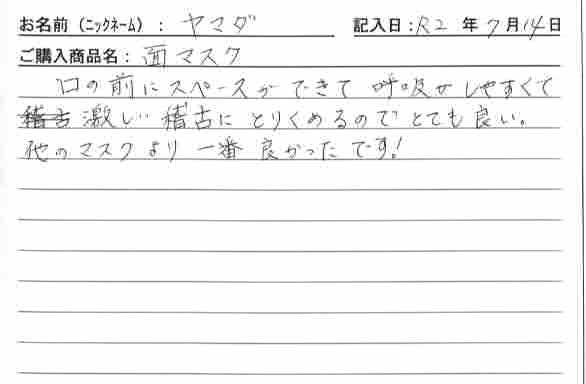 お名前（ニックネーム）：ヤマダ 記入日：R2年7月14日
ご購入商品名：面マスク
口の前にスペースができて 呼吸がしやすくて
激しい稽古にとりくめるのでとても良い。
他のマスクより一番良かったです！